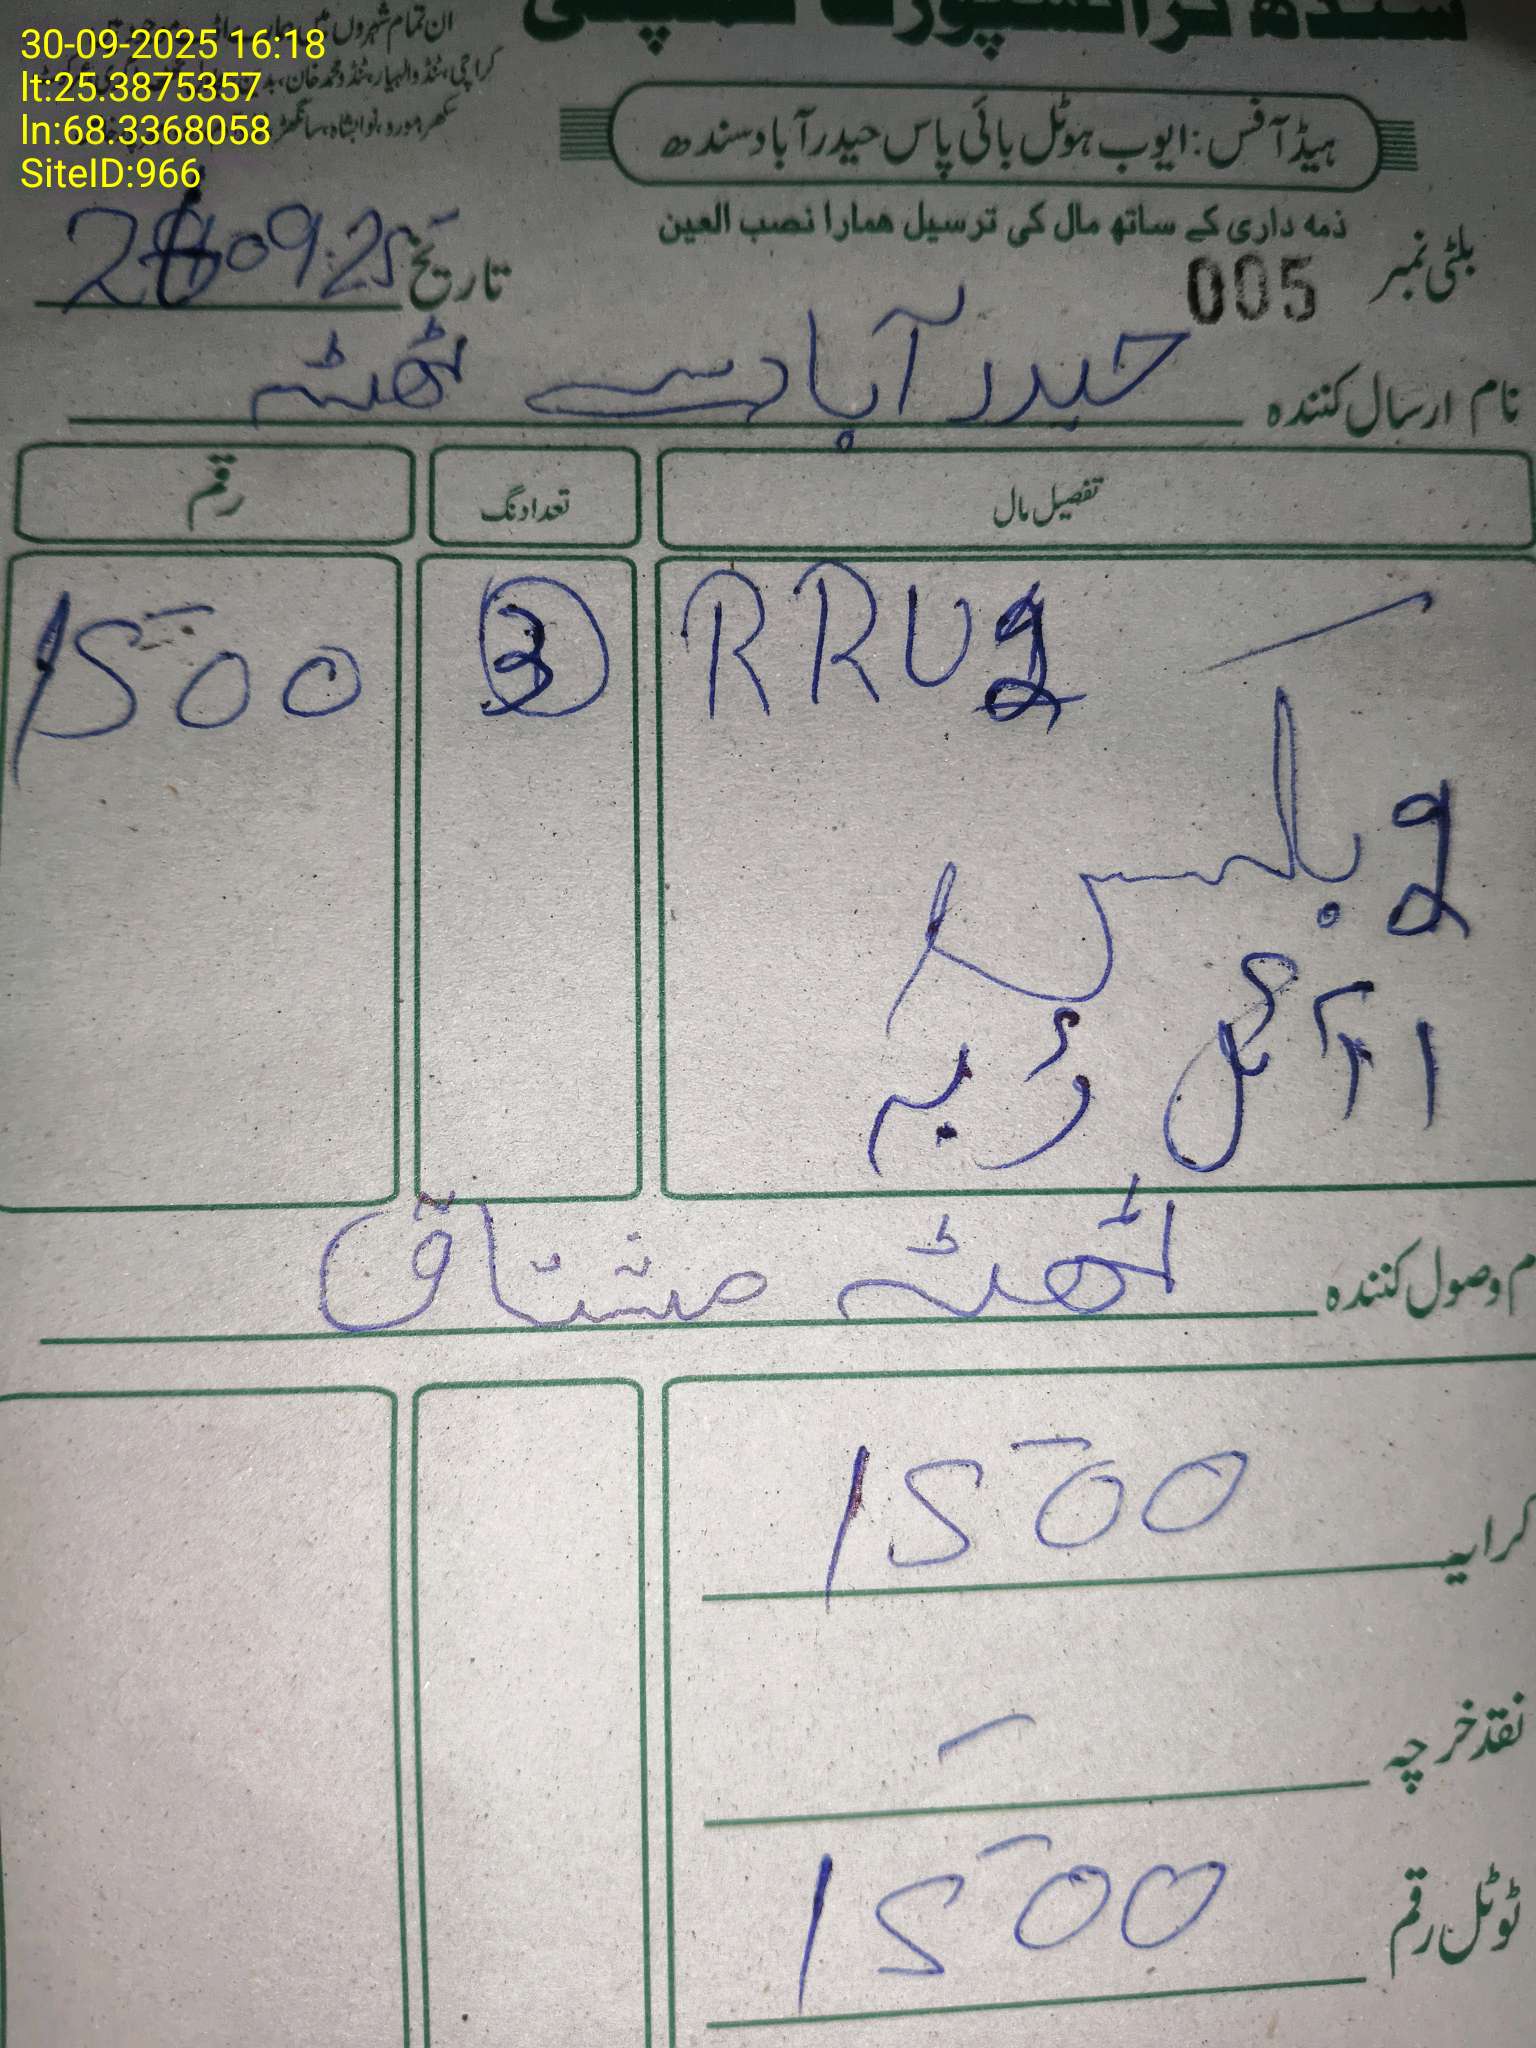 30-09-2025 16:18
lt:25.3875357
ln:68.3368058
SiteID:966
ان تمام شہروں میں
کراچی، ٹنڈوالہیار، ٹنڈو محمد خان،
سکھر، مورو، نوابشاہ، سانگھڑ،
سندھ ٹرانسپورٹ کمپنی
ہیڈ آفس: ایوب ہوٹل بائی پاس حیدرآباد سندھ
ذمہ داری کے ساتھ مال کی ترسیل ہمارا نصب العین
بلٹی نمبر 005
تاریخ 09.25
نام ارسال کنندہ حیدرآباد سے ٹھٹہ
تفصیل مال تعداد نگ رقم
RRU 3 1500
2
1 آئل ڈبہ
م وصول کنندہ ٹھٹہ مشتاق
کرایہ 1500
نقد خرچہ -
ٹوٹل رقم 1500